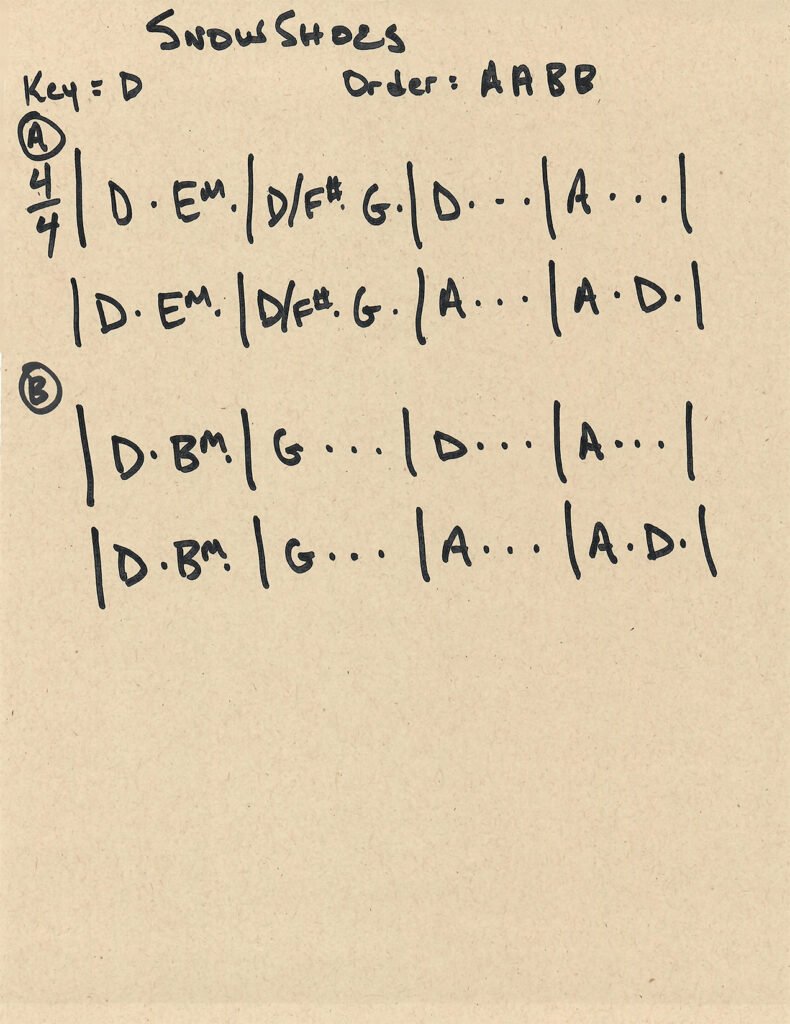 SNOWSHOES
Key = D Order: AABB
A
4/4 | D · Em · | D/F# · G · | D · · · | A · · · |
| D · Em · | D/F# · G · | A · · · | A · D · |
B
| D · Bm · | G · · · | D · · · | A · · · |
| D · Bm · | G · · · | A · · · | A · D · |